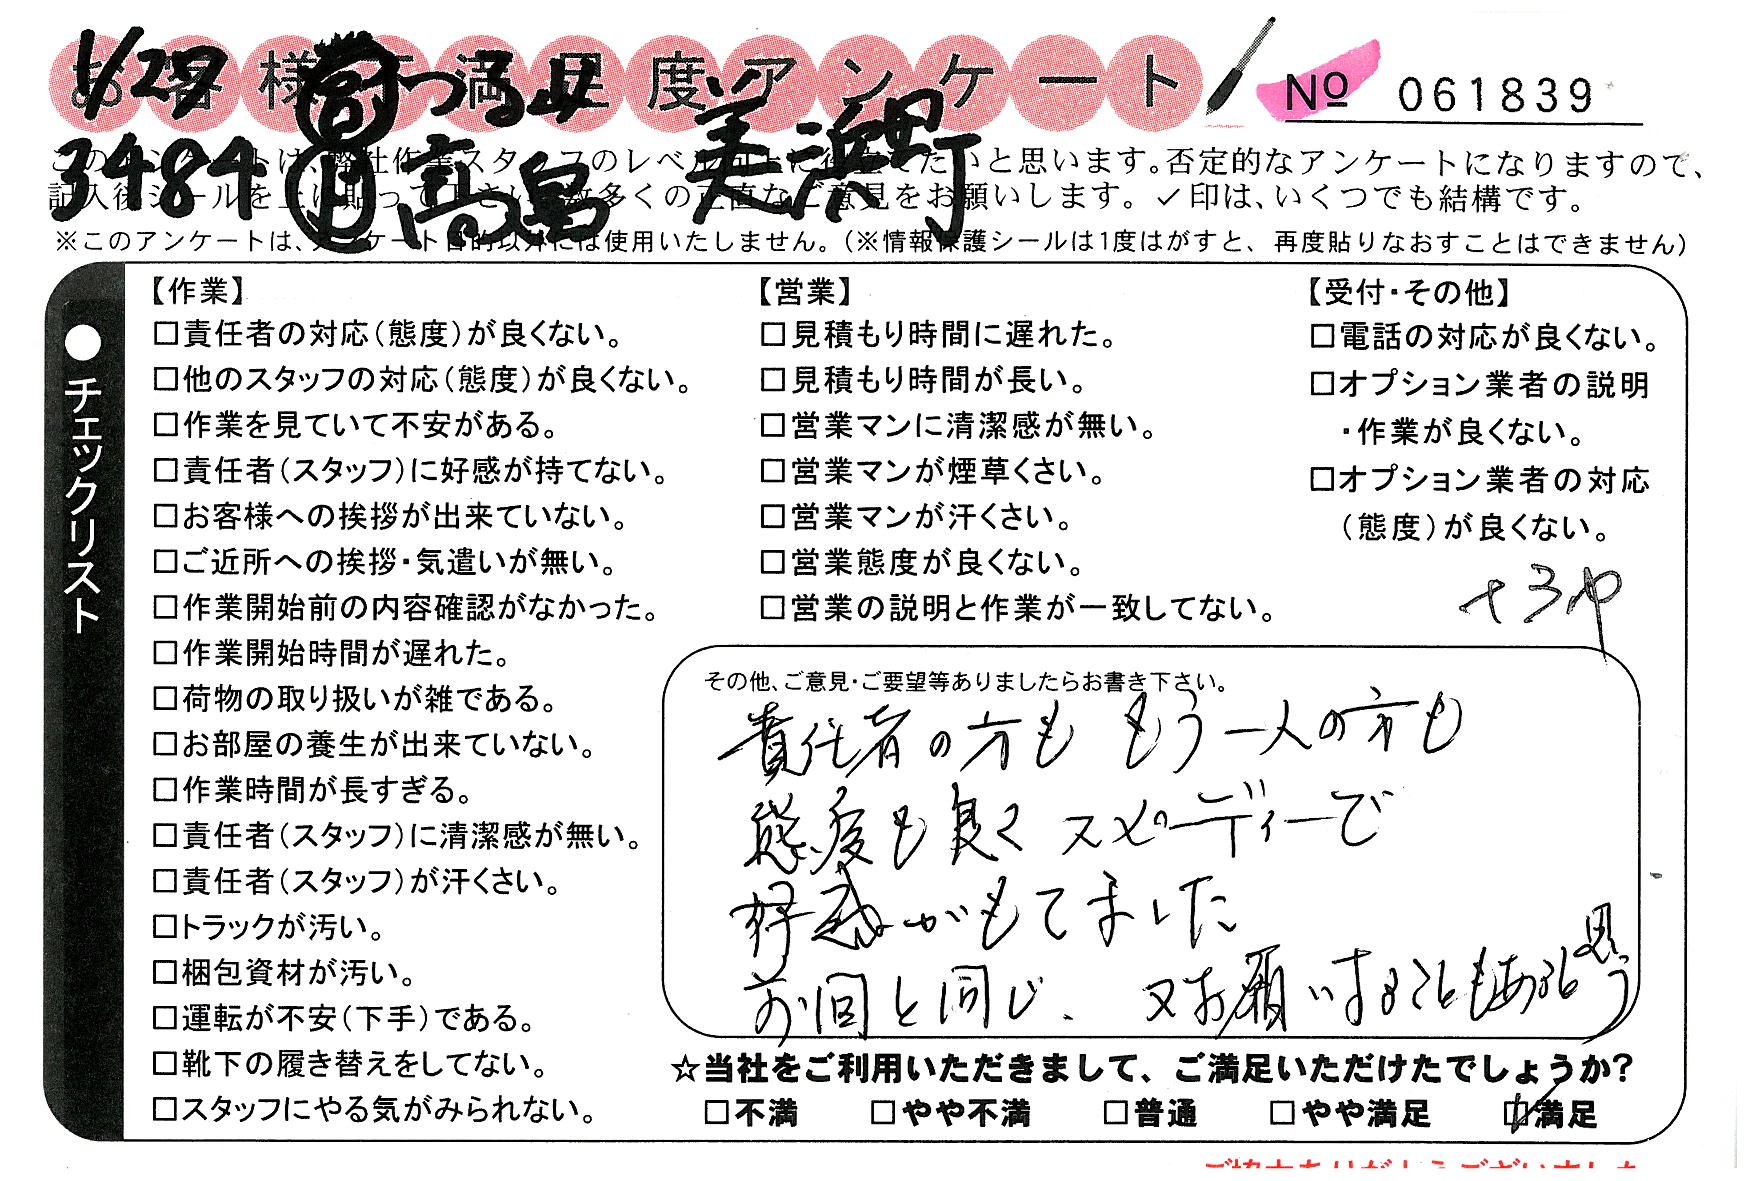 お客様不満足度アンケート
No 061839
1/27 営 つる山 美浜町
3484 作 高畠
このアンケートは、弊社作業スタッフのレベル向上に役立てたいと思います。否定的なアンケートになりますので、
記入後シールを上に貼って下さい。数多くの正直なご意見をお願いします。✓印は、いくつでも結構です。
※このアンケートは、アンケート目的以外には使用いたしません。(※情報保護シールは1度はがすと、再度貼りなおすことはできません)
●チェックリスト
【作業】
□責任者の対応(態度)が良くない。
□他のスタッフの対応(態度)が良くない。
□作業を見ていて不安がある。
□責任者(スタッフ)に好感が持てない。
□お客様への挨拶が出来ていない。
□ご近所への挨拶・気遣いが無い。
□作業開始前の内容確認がなかった。
□作業開始時間が遅れた。
□荷物の取り扱いが雑である。
□お部屋の養生が出来ていない。
□作業時間が長すぎる。
□責任者(スタッフ)に清潔感が無い。
□責任者(スタッフ)が汗くさい。
□トラックが汚い。
□梱包資材が汚い。
□運転が不安(下手)である。
□靴下の履き替えをしてない。
□スタッフにやる気がみられない。
【営業】
□見積もり時間に遅れた。
□見積もり時間が長い。
□営業マンに清潔感が無い。
□営業マンが煙草くさい。
□営業マンが汗くさい。
□営業態度が良くない。
□営業の説明と作業が一致してない。
【受付・その他】
□電話の対応が良くない。
□オプション業者の説明
・作業が良くない。
□オプション業者の対応
(態度)が良くない。
+3P
その他、ご意見・ご要望等ありましたらお書き下さい。
責任者の方も もう一人の方も
態度も良く スピーディーで
好感がもてました
前回と同じ、又お願いすることもあると思う
☆当社をご利用いただきまして、ご満足いただけたでしょうか?
□不満 □やや不満 □普通 □やや満足 ☑満足
ご協力ありがとうございました